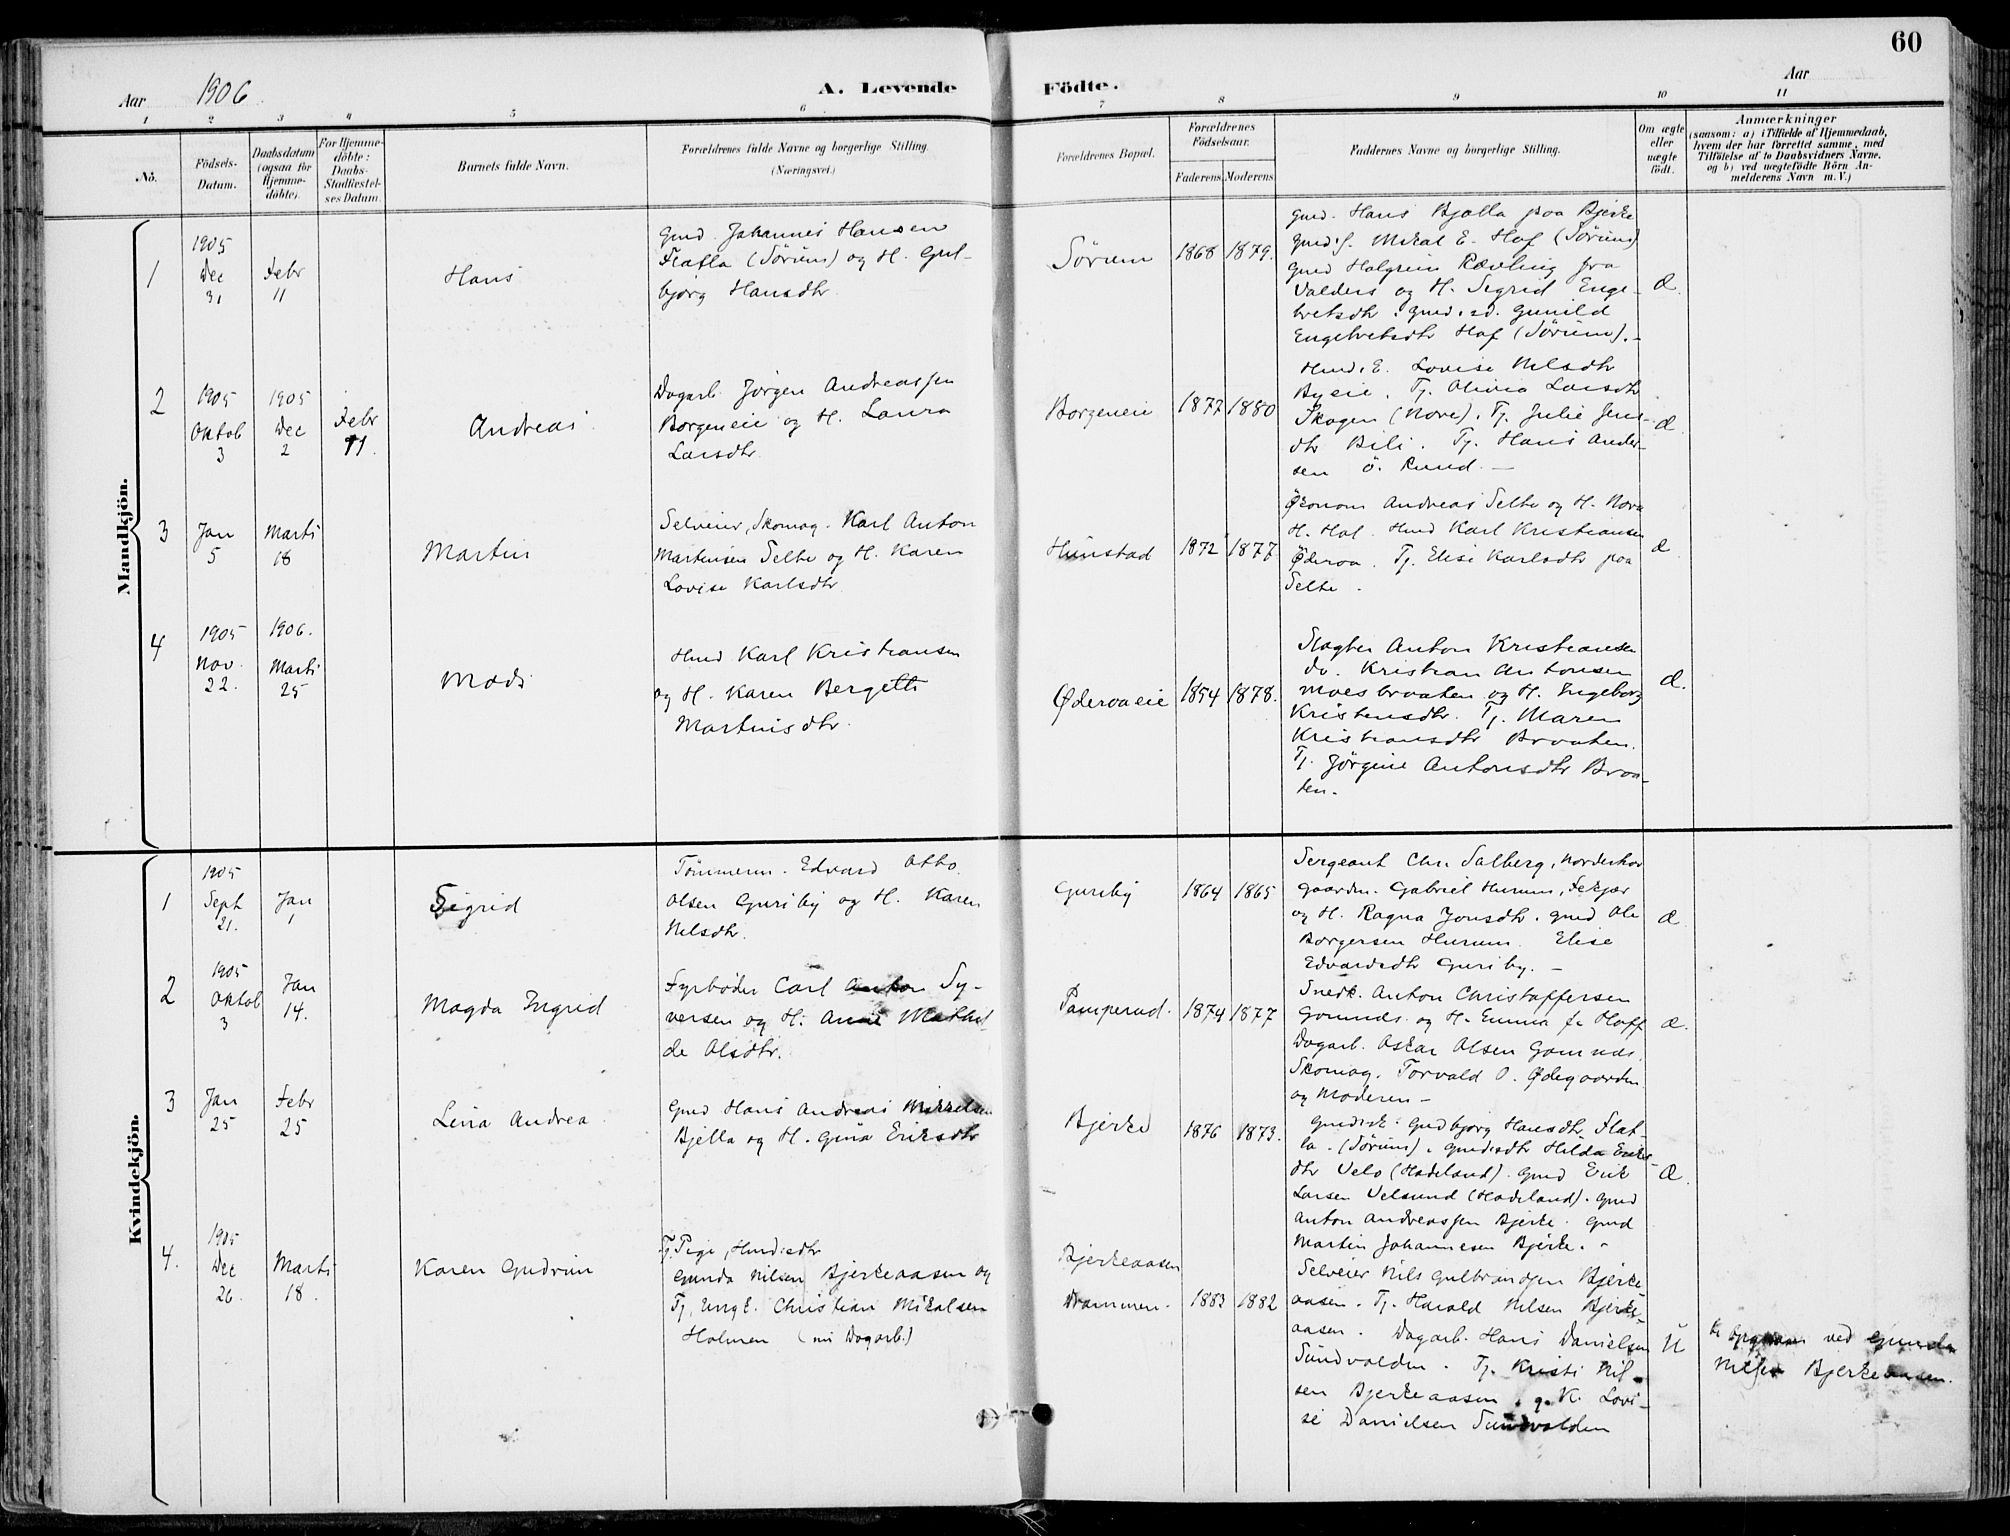 60
Aar 1906.
A. Levende Födte.
Aar
1 2 3 4 5 6 7 8 9 10 11
No.
Födsels-Datum.
Daabsdatum (ogsaa for Hjemmedöbte).
For Hjemmedöbte: Daabs-Stadfæstelses Datum.
Barnets fulde Navn.
Forældrenes fulde Navne og borgerlige Stilling.
(Næringsvei.)
Forældrenes Bopæl.
Forældrenes Födselsaar.
Faderens. Moderens.
Faddernes Navne og borgerlige Stilling.
Om ægte eller uægte födt.
Anmærkninger
(saasom: a) i Tilfælde af Hjemmedaab,
hvem der har forrettet samme, med
Tilföielse af to Daabsvidners Navne,
og b) ved uægtefödte Börn Anmelderens Navn m. V.)
Mandkjön.
1
1905
Dec
31
Febr
11
Hans
Gmd. Johannes Hansen
Flatla (Sørum) og H. Gul-
bjørg Hansdtr
Sörum
1868 1879.
Gmd. Hans Bjølla paa Bjerke
Gmd.s. Mikal E. Hof (Sörum)
Gmd Halgrim Rævling fra
Valders og H. Sigrid Enge-
bretsdtr. Gmd.sd. Gunild
Engebretsdtr Hof (Sörum).-
Æ.
2
1905
Oktob
3
1905
Dec
2
Febr
11.
Andreas
Dagarb. Jørgen Andreassen
Borgeneie og H. Laura
Larsdtr.
Borgeneie
1877 1880
Hmd.E. Lovise Nilsdtr
Byeie. Tj. Olivia Larsdtr
Skogen (Nore). Tj. Julie Jens-
dtr Bili. Tj. Hans Ander-
sen Ö. Rund. —
Æ.
3
Jan
5
Marts
18
Martin
Selveier, Skomag. Karl Anton
Martinsen Selte og H. Karen
Lovise Karlsdtr.
Hunstad
1872 1877
Økonom Andreas Selte og H. Nora
H. Hol. Hmd Karl Kristiansen
Øderaa. Tj. Elise Karlsdtr paa
Selte.
Æ.
4
1905
Nov.
22.
1906.
Marts
25
Mads
Hmd Karl Kristiansen
og H. Karen Bergette
Martinsdtr.
Øderaaeie
1854 1878.
Slagter Anton Kristiansen
do. Kristian Antonsen
Moesbraaten og H. Ingeborg
Kristensdtr. Tj. Maren
Kristiansdtr Braaten.
Tj. Jørgine Antonsdtr Braa-
ten.
Æ.
Kvindekjön.
1
1905
Sept
21.
Jan
1
Sigrid
Tømmerm. Edvard Otto
Olsen Guriby og H. Karen
Nilsdtr.
Guriby
1864 1865
Sergeant Chr. Salberg, Norderhov
Gaardm. Gabriel Hurum, Fekjær
og H. Ragna Jonsdtr. Gmd Ole
Borgersen Hurum. Elise
Edvardsdtr Guriby. —
Æ.
2
1905
Oktob
3
Jan
14.
Magda Ingrid
Fyrbøder Carl Anton Sy-
versen og H. Anne Mathil
de Olsdtr.
Pamperud.
1874 1877
Snedk. Anton Christoffersen
Gomnds. og H. Emma f. Hoff
Dagarb. Oskar Olsen Gomnds.
Skomag. Torvald O. Ødegaarden
og Moderen –
Æ.
3
Jan
25
Febr
25
Lina Andrea
Gmd Hans Andreas Mikkelsen
Bjella og H. Gina Eriksdtr
Bjerke
1876 1873.
Gmdsk. Gudbjørg Hansdtr Flat-
la. (Sörum). Gmdsdtr Hilda Eriks-
dtr Velo (Hadeland). Gmd Erik
Larsen Velsund (Hadeland). Gmd
Anton Andreassen Bjerke. Gmd
Martin Johannesen Bjerke. -
Æ.
4.
1905
Dec
26.
Marts
18.
Karen Gudrun
Tj. Pige, Hmdsdtr
Gunda Nilsen Bjerkeaasen og
Tj. Ungk. Christian Mikalsen
Holmen (nu Dagarb.)
Bjerkeaasen
Drammen.
1883 1882
Selveier Nils Gulbrandsen Bjerke-
aasen. Tj. Harald Nilsen Bjerke-
aasen. Dagarb. Hans Danielsen
Sundvolden. Tj. Kristi Nil-
sen Bjerkeaasen. g. K. Lovi-
se Danielsen Sundvolden
U
ved Gunda
Nilsen Bjerkeaasen.